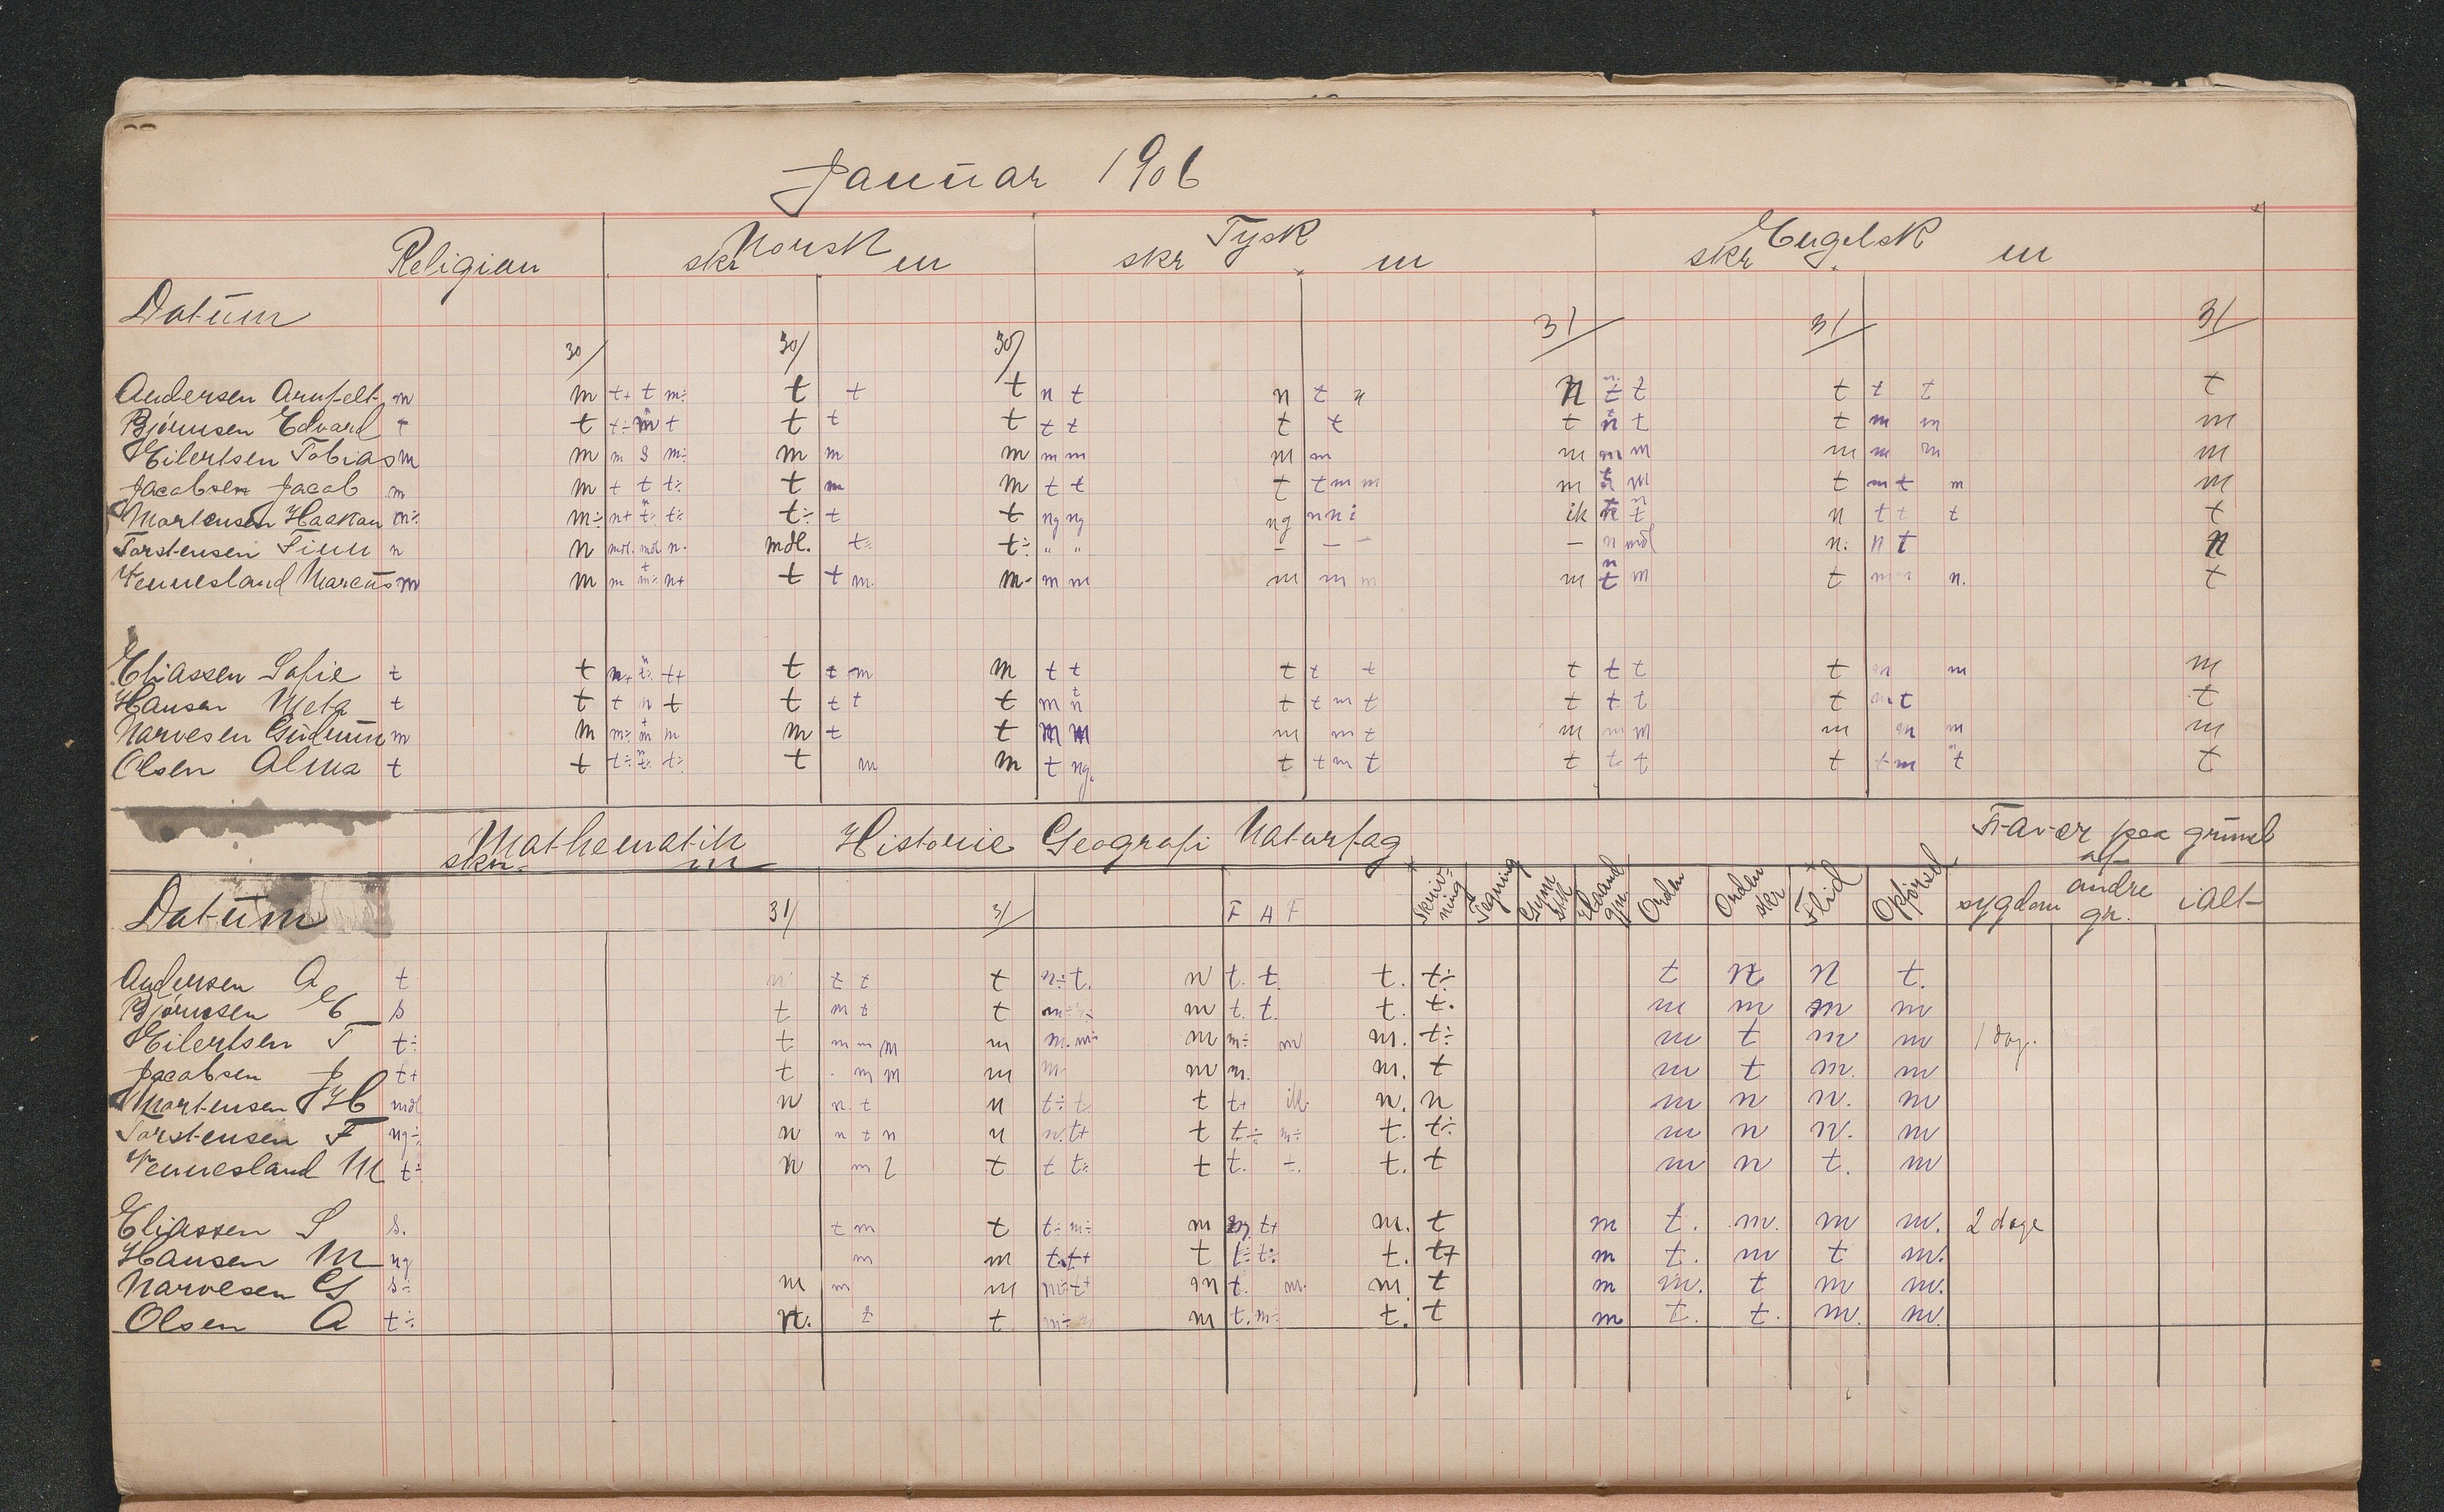 Januar 1906
Religion Norsk Tysk Engelsk
skr m skr m skr m
Datum
31/ 31/ 31/
30/ 30/ 30/
Andersen Arnfelt m m t+ t m÷ t t t n t n t n t t t t t t
Bjørnsen Edvard t t t t t t t t t t t t t m m m
Eilertsen Tobias m m m s m÷ m m m m m m m m m m m m m m
Jacobsen Jacob m m t t t÷ t m m t t t t m m m m t m t m m
Martensen Haakon m÷ m÷ n+ t÷ t÷ t÷ t t ng ng ng n n i ik t n t t t t
Torstensen Finn n n mdl. mdl n. mdl. t÷ t÷ " " – – – – n mdl n. n t n
Tennesland Marcus m m m m÷ n+ t t m. m m m m m m m t m t n. t
Eliassen Sofie t t t÷ t+ t t m m t t t t t t t t t m m m
Hansen Meta t t t n t t t t t m t t m t t t t t m t t
Narvesen Gudrun m m m÷ m m m t t m m m m t m m m m m m m
Olsen Alma t t t÷ t÷ t÷ t m m t ng. t t m t t t t t t m t t
Mathematik Historie Geografi Naturfag Fravær paa grund
skr. m af
Skriv-
ning Tegning Gym
stk Haand
gjn. Orden Orden
skr Flid Opførsel sygdom andre
gr. ialt
Datum 31/ 31/ F H F
Andersen A t n t t t n÷ t. n t. t. t. t÷ t n n t.
Bjørnsen E s t m t t m t. t. t. t. m m m m
Eilertsen T t÷ t m m m m m. m÷ m m÷ m m. t÷ m t m m 1 dag.
Jacobsen J t+ t m m m m m m. m. t m t m. m
Martensen H mdl n n. t n t÷ t t t+ ik n. n m n n. m
Torstensen F ng÷ n n t n n n. t+ t t÷ m÷ t. t÷ m n n. m
Tennesland M t÷ n m t t t÷ t t. t. t. t m n t. m
Eliassen S s. t m t t÷ m÷ m t+ m. t m t. m. m m. 2 dage
Hansen M ng m m t. t+ t t÷ t÷ t. t+ m t. m t m.
Narvesen G s÷ m m m m t. m. m. t m m. t m m.
Olsen A t÷ n. t t m t. m÷ t. t m t. t. m. m.